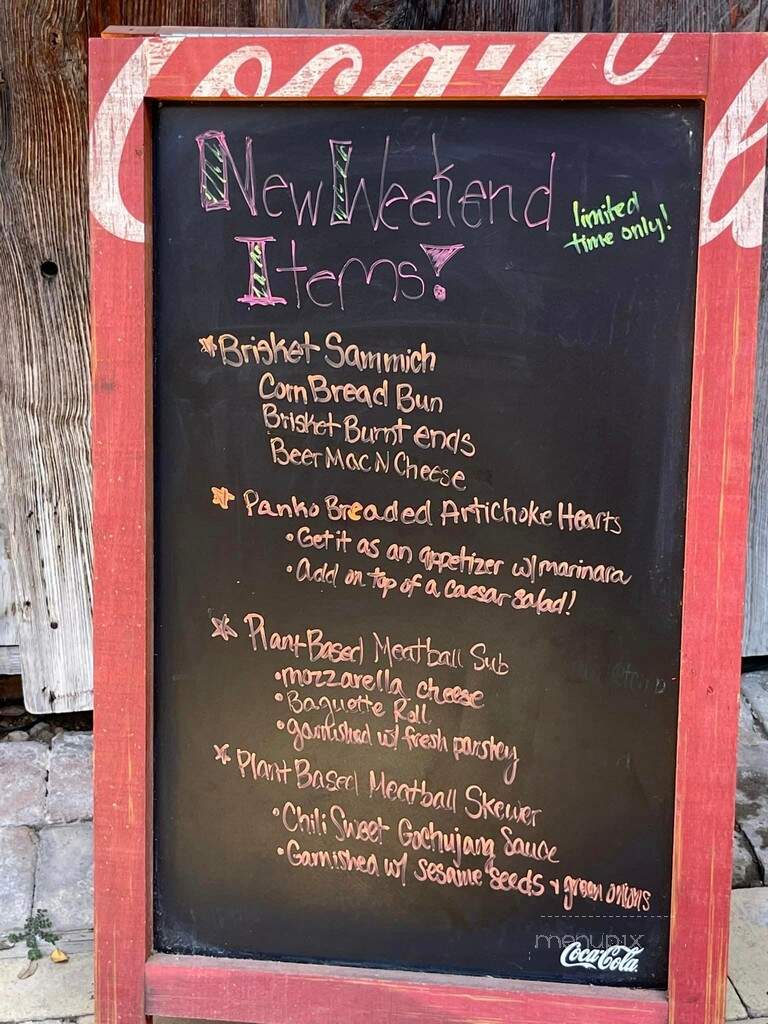 Coca-Co
New Weekend
Items!
limited
time only!
Brisket Sammich
Corn Bread Bun
Brisket Burnt ends
Beer Mac N Cheese
Panko Breaded Artichoke Hearts
• Get it as an appetizer w/ marinara
• Add on top of a caesar salad!
Plant Based Meatball Sub
• mozzarella cheese
• Baguette Roll
• garnished w/ fresh parsley
Plant Based Meatball Skewer
• Chili Sweet Gochujang Sauce
• Garnished w/ sesame seeds + green onions
menupix
Coca-Cola